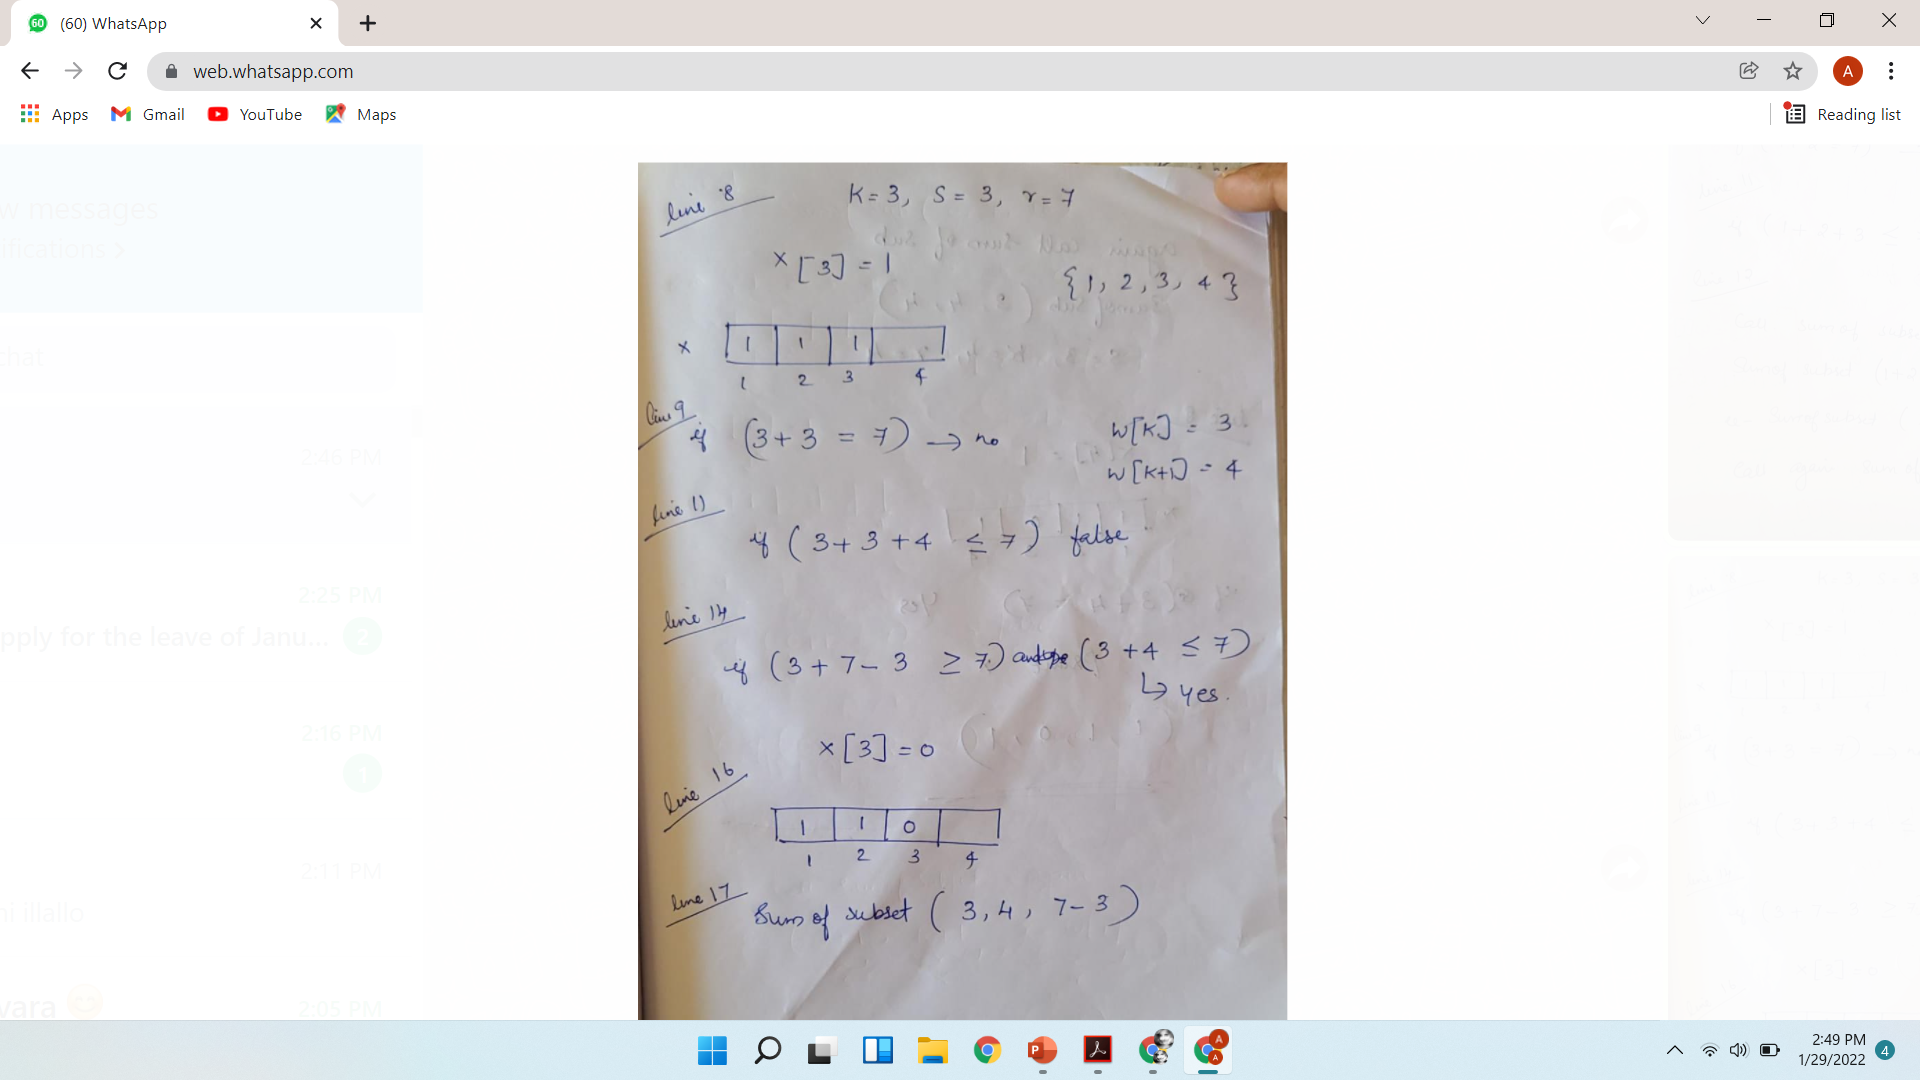 (60) WhatsApp
web.whatsapp.com
Apps Gmail YouTube Maps Reading list
w messages
ifications >
hat
2:46 PM
2:25 PM
pply for the leave of Janu... 2
2:16 PM
1
2:11 PM
ni illallo
vara
2:05 PM
line 8 K = 3, S = 3, r = 7
x [3] = 1 {1, 2, 3, 4}
x 1 1 1
1 2 3 4
line 9
if (3 + 3 = 7) → no w[K] = 3
w[K+1] = 4
line 11
if (3 + 3 + 4 ≤ 7) false
line 14
if (3 + 7 - 3 ≥ 7) and (3 + 4 ≤ 7)
↳ yes.
x [3] = 0
line 16
1 1 0
1 2 3 4
line 17 Sum of subset (3, 4, 7-3)
2:49 PM
1/29/2022 4